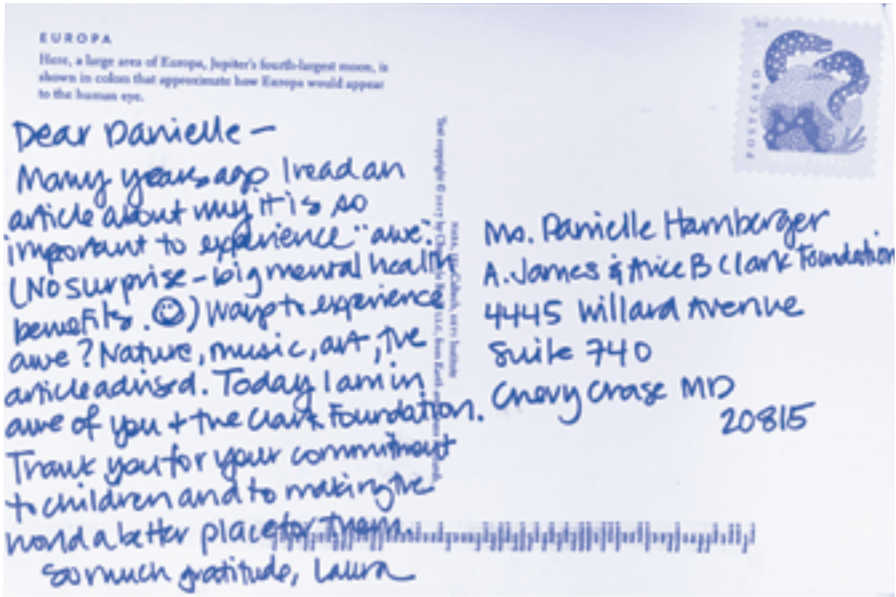 EUROPA
Here, a large area of Europa, Jupiter's fourth-largest moon, is
shown in colors that approximate how Europa would appear
to the human eye.
Dear Danielle —
Many years ago I read an
article about why it is so
important to experience "awe."
(No surprise – big mental health
benefits. ☺) Ways to experience
awe? Nature, music, art, the
article advised. Today I am in
awe of you + the Clark Foundation.
Thank you for your commitment
to children and to making the
world a better place for them.
So much gratitude, Laura
Text copyright © 2017 by Chronicle Books LLC, from Earth and
POSTCARD
Ms. Danielle Hamberger
A. James & Alice B Clark Foundation
4445 Willard Avenue
Suite 740
Chevy Chase MD
20815